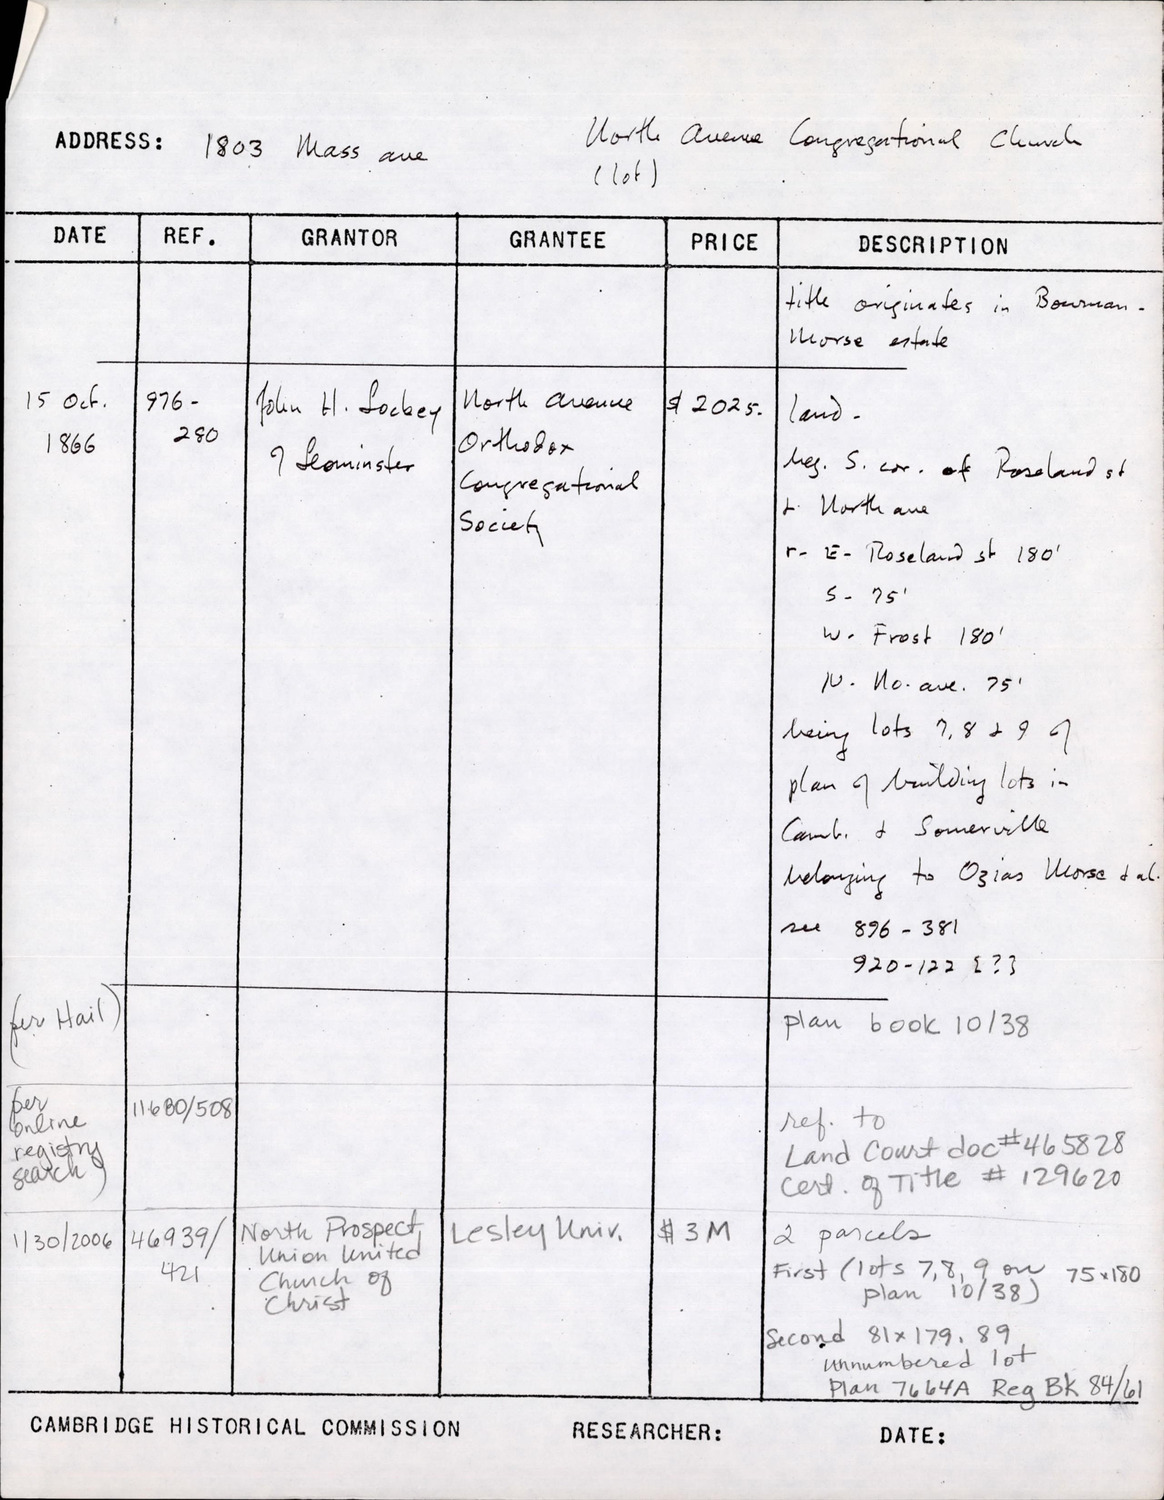 ADDRESS: 1803 Mass ave
North Avenue Congregational Church
(lot)
DATE REF. GRANTOR GRANTEE PRICE DESCRIPTION
title originates in Bowman-
Morse estate
15 Oct.
1866
976-
280
John H. Lockey
of Leominster
North Avenue
Orthodox
Congregational
Society
$ 2025.
land-
beg. S. cor. of Roseland st
+ North ave
r- E- Roseland st 180'
S- 75'
W- Frost 180'
N- No. ave. 75'
being lots 7, 8 + 9 of
plan of building lots in
Camb. + Somerville
belonging to Ozias Morse + al.
see 896-381
920-122 [?]
(per Hail)
plan book 10/38
per
online
registry
search)
11680/508
ref. to
Land Court doc# 465828
Cert. of Title # 129620
1/30/2006
46939/
421
North Prospect
Union United
Church of
Christ
Lesley Univ.
$ 3 M
2 parcels
First (lots 7, 8, 9 on 75x180
plan 10/38)
Second 81x179.89
unnumbered lot
Plan 7664A Reg Bk 84/61
CAMBRIDGE HISTORICAL COMMISSION RESEARCHER: DATE: